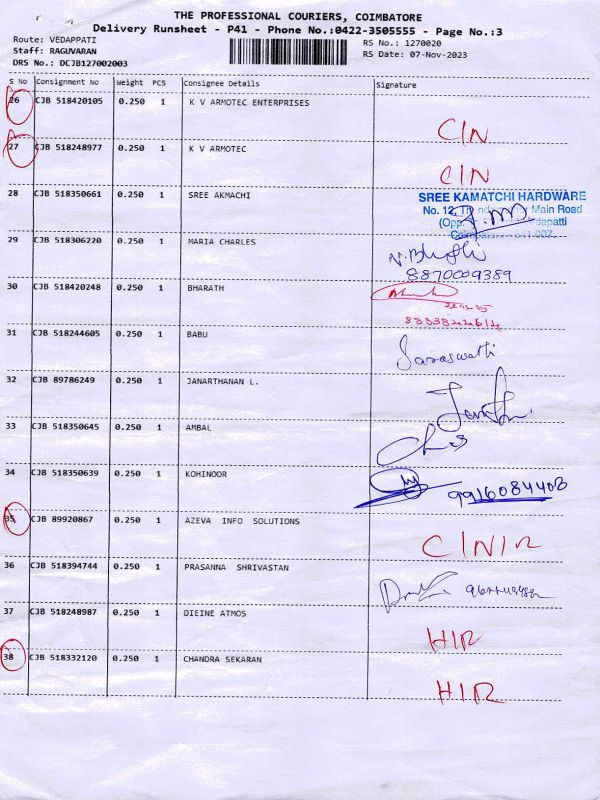 THE PROFESSIONAL COURIERS, COIMBATORE
Delivery Runsheet - P41 - Phone No.:0422-3505555 - Page No.:3
Route: VEDAPPATI RS No.: 1270020
Staff: RAGUVARAN RS Date: 07-Nov-2023
DRS No.: DCJB127002003
S No Consignment No Weight PCS Consignee Details Signature
26 CJB 518420105 0.250 1 K V ARMOTEC ENTERPRISES
CIN
27 CJB 518248977 0.250 1 K V ARMOTEC
CIN
28 CJB 518350661 0.250 1 SREE AKMACHI
SREE KAMATCHI HARDWARE
No. 12, Main Road
(Opp.
29 CJB 518306220 0.250 1 MARIA CHARLES
8870009389
30 CJB 518420248 0.250 1 BHARATH
31 CJB 518244605 0.250 1 BABU
Saraswathi
32 CJB 89786249 0.250 1 JANARTHANAN L.
33 CJB 518350645 0.250 1 AMBAL
34 CJB 518350639 0.250 1 KOHINOOR
9916084408
35 CJB 89920867 0.250 1 AZEVA INFO SOLUTIONS
CINIR
36 CJB 518394744 0.250 1 PRASANNA SHRIVASTAN
37 CJB 518248987 0.250 1 DIEINE ATMOS
HIR
38 CJB 518332120 0.250 1 CHANDRA SEKARAN
HIR